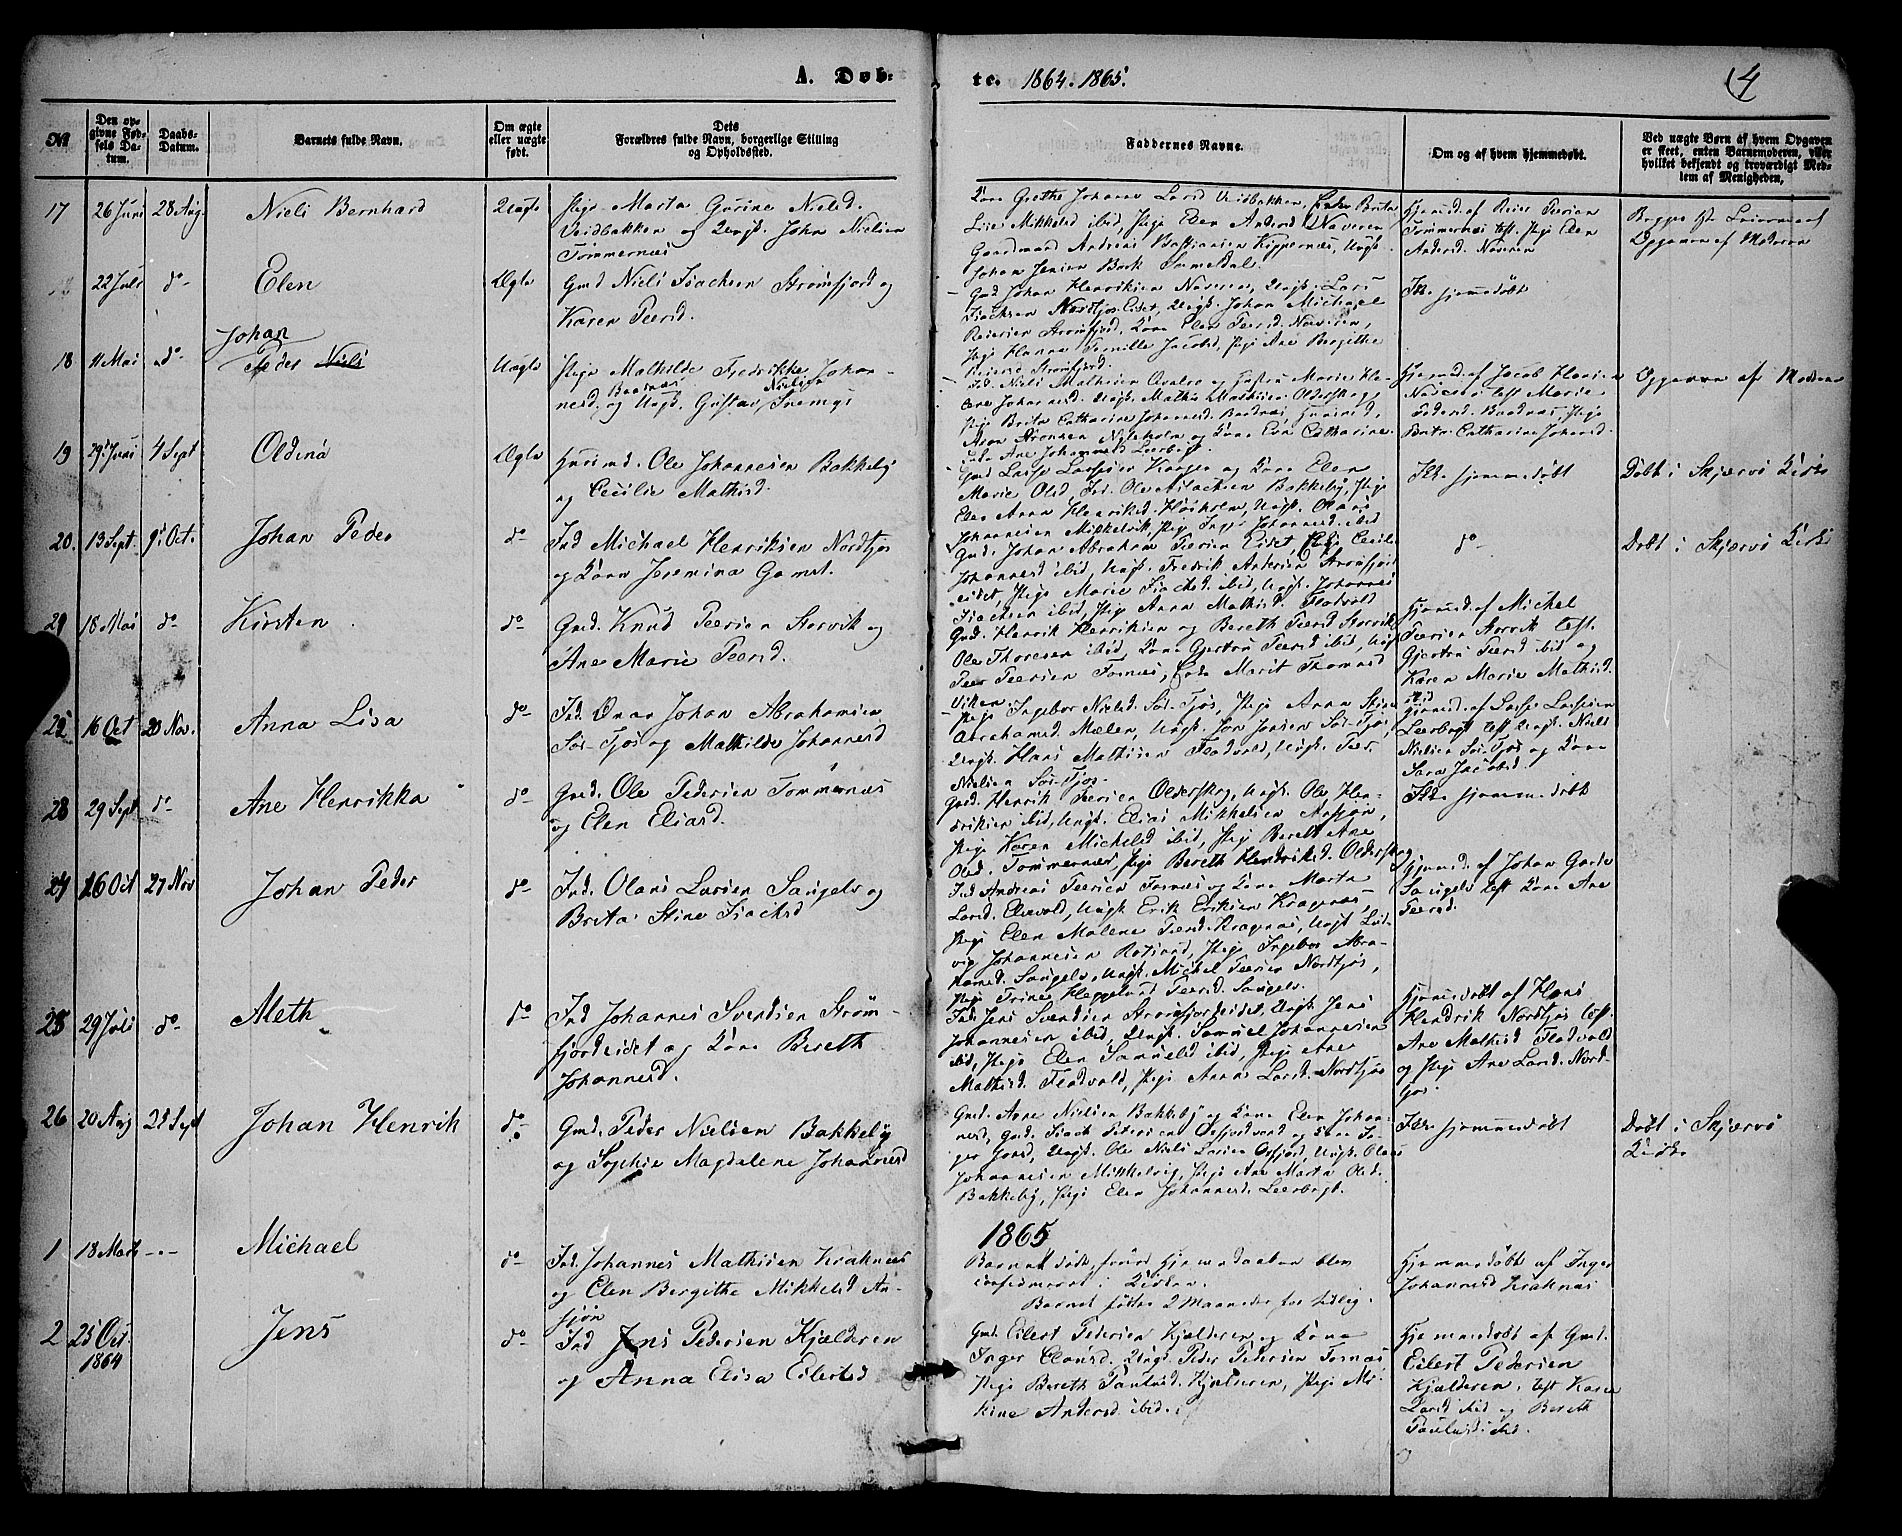 A. Døb-
te. 1864. 1865.
4
No
Den op-
givne Fød-
sels Da-
tum.
Daabs-
Datum.
Barnets fulde Navn.
Om ægte
eller uægte
født.
Dets
Forældres fulde Navn, borgerlige Stilling
og Opholdssted.
Faddernes Navne.
Om og af hvem hjemmedøbt.
Ved uægte Børn af hvem Opgaven
er skeet, enten Barnemoderen, eller
hvilket bekjendt og troværdigt Med-
lem af Menigheden.
17 26 Juni 28 Aug. Nieli Bernhard Uægte Pige Marta Gurine Nielsd.
Veidbakken og Ungk. John Nielsen
Tømmernæs
Kone Grethe Johanna Larsd Veidbakken,
Lise Mikkelsd ibid, Pige Elen Andersd Naveren
Gaardmand Andreas Bastiansen Kippernæs, Ungk.
Johan Jensen Bark
Hjemmed. af Reier Peersen
Tømmernæs test. Pige Elen
Andersd. Naveren
Opgaven af Moderen
22 Juli do Elen Ægte Gmd Niels Isachsen Strømfjord og
Karen Peersd.
Gmd Johan Henriksen Naveren, Ungk. Lars
Isachsen Eidet, Ungk. Johan Michael
Reiersen Strømfjord, Kone Elen Peersd. Naveren,
Pige Hanna Pernille Jacobsd, Pige Ane Bergithe
Reiersd Strømfjord.
Ikke hjemmedøbt
18 11 Mai do Johan
Peder Niels
Uægte Pige Mathilde Fredrikke Johan-
nesd. Baadnæs og Ungk. Gustav Nielsen
Ind. Niels Mathisen og Hustru Marie
Johannesd. Ungk. Mathis Mathisen Olderskog,
Pige Brita Catharina Johannesd. Baadnæs,
Aron Aronsen og Kone Eva Catharine
Ane Johannesd Leerbugt.
Hjemmed. af Jacob Hansen
test Marie
Pedersd. Baadnæs, Pige
Brita Catharina Johannesd.
Opgaven af Moderen
19 29 Juni 4 Sept Oldina Ægte Husmd. Ole Johannesen Bakkeby
og Cecilie Mathisd.
Gmd Lasse Lassesen og Kone Elen
Marie Olsd, Ind. Ole Aslachsen Bakkeby, Pige
Elen Anna Henriksd. Høiholm, Ungk. Olaus
Johannesen Mikkelvik, Pige Inger Johannesd. ibid
Ikke hjemmedøbt
Døbt i Skjervø Kirke
20. 13 Sept. 9 Oct. Johan Peder do Ind Michael Henriksen Nordfjos
og Kone Jeremina Gamst.
Gmd. Johan Abraham Peersen Eidet, Pige Cecilie
Johannesd ibid, Ungk. Fredrik Andersen Strømfjord
eidet, Pige Marie Isachsd. ibid, Ungk. Johannes
Isachsen ibid, Pige Anna Mathisd. Fladvold
do
Døbt i Skjervø Kirke
21 18 Mai do Kirsten do Gmd. Knud Peersen Storvik og
Ane Marie Peersd.
Gmd. Henrik Henriksen og Bereth Peersd Storvik
Ole Thoresen ibid, Kone Gjertru Peersd ibid, Ungk
Peer Peersen Fornæs, Enke Marit Thomasd
Viken.
Hjemmed. af Michel
Peersen Storvik test.
Gjertru Peersd ibid og
Karen Marie Mathisd.
ibid
22 16 Oct 20 Nov. Anna Lisa do Ind. Onar Johan Abrahamsen
Sør-Fjos og Mathilde Johannesd
Pige Ingebor Nielsd. Sør-Fjos, Pige Anna Stina
Abrahamsd. Mælen, Ungk. Jon Jonsen Sør-Fjos,
Ungk. Hans Mathisen Fladvold, Ungk. Peer
Nielsen Sør-Fjos.
Hjemmed. af Lasse Lassesen
Leerbugt test Ungk. Niels
Nielsen Sør-Fjos og Kone
Sara Jacobsd.
23 29 Sept do Ane Henrikka do Gmd. Ole Pedersen Tømmernæs
og Elen Eliasd.
Gmd. Henrik Peersen Olderskog, Ungk. Ole Hen-
driksen ibid, Ungk. Elias Mikkelsen Arsjøn,
Pige Karen Michelsd ibid, Pige Bereth Ane
Olsd. Tømmernæs, Pige Bereth Hendriksd. Olderskog
Ikke hjemmedøbt
24 16 Oct 27 Nov Johan Peder do Ind. Olaus Larsen Saugelv og
Brita Stine Isachsd
Ind Andreas Peersen Fornæs og Kone Marta
Larsd. Elvevold, Ungk. Erik Eriksen Kragenæs,
Pige Elen Malene Peersd. Kragenæs, Ungk Lud-
vig Johannesen Rotsund, Pige Ingebor Abra-
hamsd. Saugelv, Ungk. Michel Peersen Nordfjos,
Pige Trine Peersd. Saugelv.
Hjemmed. af Johan
Saugelv test Kone Ane
Peersd.
25 29 Juli do Meth do Ind Johannes Svendsen Strøm-
fjordeidet og Kone Bereth
Johannesd.
Ind. Jens Svendsen Strømfjordeidet, Ungk. Jens
Johannesen ibid, Ungk. Samuel Johannesen
ibid, Pige Elen Samuelsd ibid, Pige Ane
Mathisd. Fladvold, Pige Anna Larsd. Nordfjos
Hjemmedøbt af Hans
Hendrik Nordfjos test.
Ane Mathisd Fladvold
og Pige Ane Larsd. Nord-
fjos.
26 20 Aug 25 Sept Johan Henrik do Gmd. Peder Nielsen Bakkeby
og Sophie Magdalene Johannesd
Gmd. Arne Nielsen Bakkeby og Kone Elen Johan-
nesd, Gmd. Isach Petersen og Kone In-
ger Ungk. Ole Niels Larsen Oxfjord, Ungk. Olaus
Johannesen Mikkelvig, Pige Ane Marta Olsd.
Bakkeby, Pige Elen Johannesd. Leerbugt.
Ikke hjemmedøbt
Døbt i Skjervø
Kirke
1865
1 18 Marts -.- Michael do Ind. Johannes Mathisen Kraknæs
og Elen Bergithe Mikkelsd Ar-
sjøn
Barnet døde, førend Hjemmedaaben blev
confirmeret i Kirken.
Barnet fødtes 2 Maaneder for tidlig.
Hjemmedøbt af Inger
Johannesd Kraknæs
2 25 Oct.
1864
Jens do Ind Jens Pedersen Kjælderen
og Anna Elisa Eilertsd
Gmd. Eilert Pedersen Kjælderen og Kone
Inger Clausd. Ungk. Peder Pedersen Fornæs
Pige Bereth Paulusd. Kjælderen, Pige Ma-
kine Andersd. ibid.
Hjemmedøbt af Gmd.
Eilert Pedersen
Kjælderen, test Karen
Larsd ibid og Bereth
Paulusd. ibid.